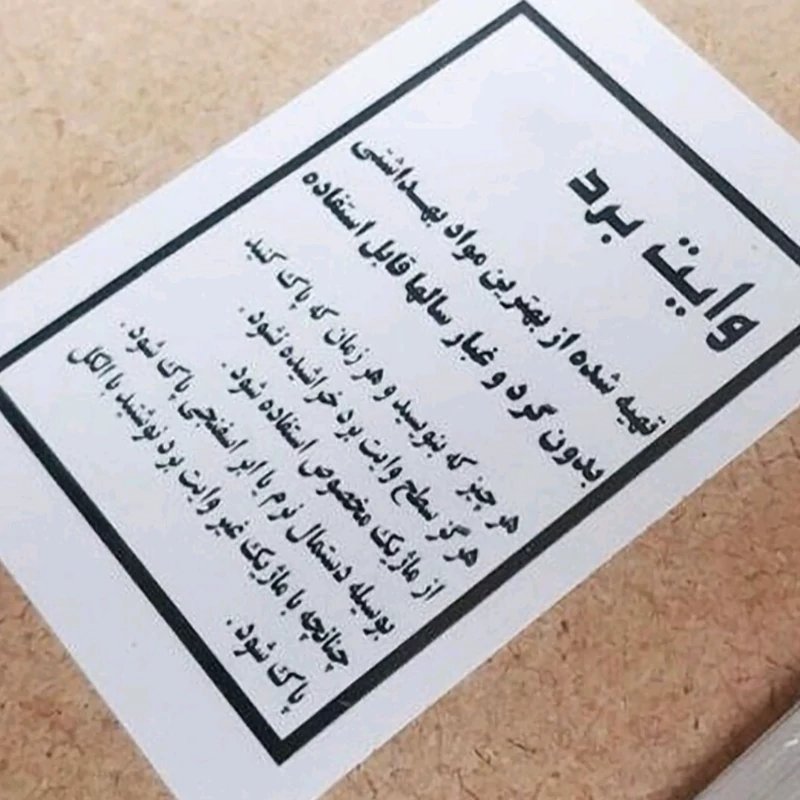 وایت برد
تهیه شده از بهترین مواد بهداشتی
بدون گرد و غبار سالها قابل استفاده
هر چیز که بنویسید و هر زمان که پاک کنید
هرگز سطح وایت برد خراشیده نشود .
از ماژیک مخصوص استفاده شود .
بوسیله دستمال نرم یا ابر اسفنجی پاک شود .
چنانچه با ماژیک غیر وایت برد نوشتید با الکل
پاک شود .